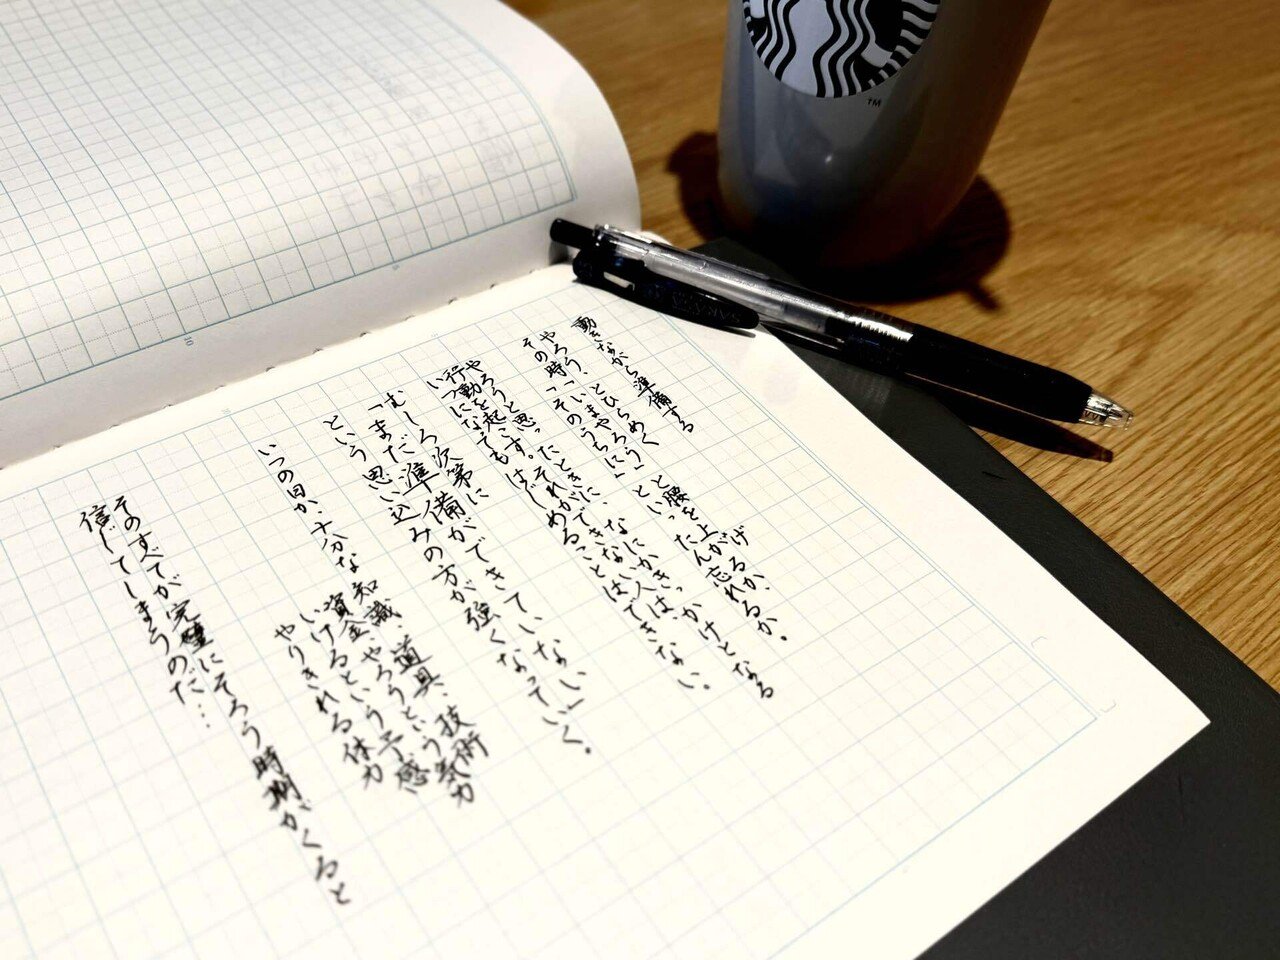 動きながら準備する
やろう、とひらめく
その時「いまやろう」と腰を上げるか、
「そのうちに」といったん忘れるか。
やろうと思ったときに、なにかきっかけとなる
行動を起こす。それができない人は、
いつになってもはじめることはできない。
むしろ次第に
「まだ準備ができていない」
という思い込みの方が強くなっていく。
いつの日か、十分な知識、道具、技術
資金、やろうという気力
いけるという予感
やりきれる体力
そのすべてが完璧にそろう時期がくると
信じてしまうのだ…
SARASA
TM